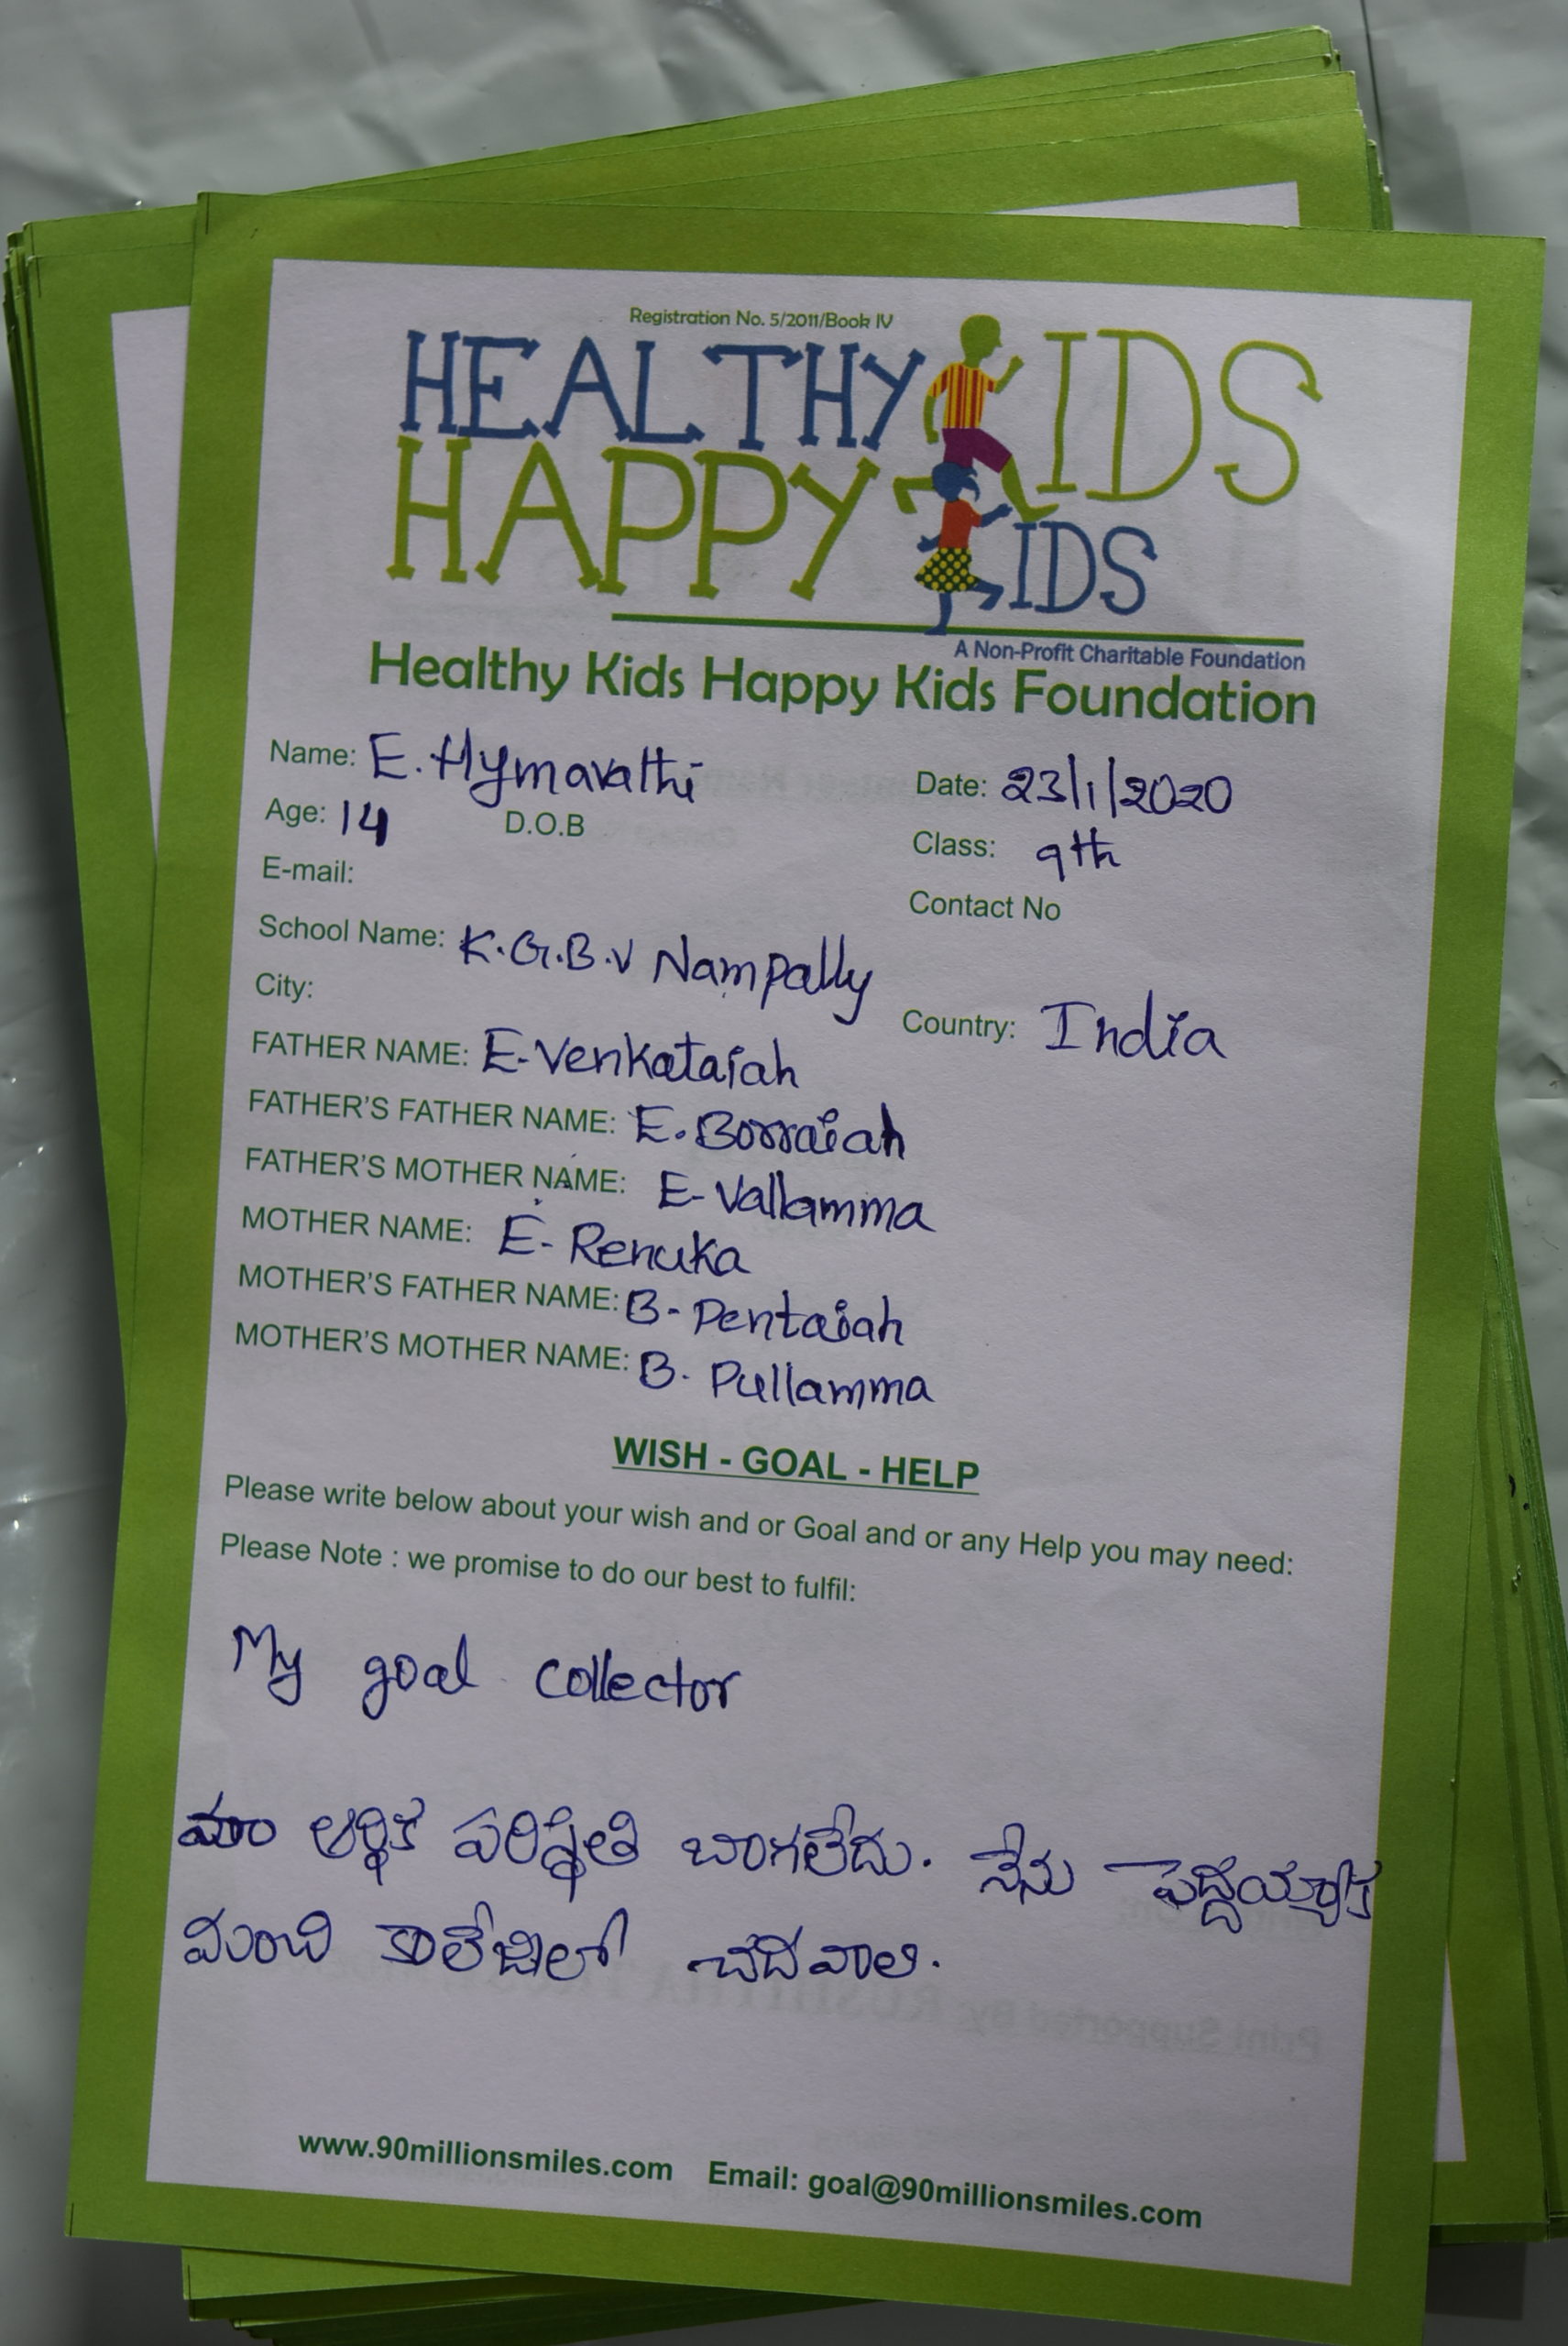 Registration No. 5/2011/Book IV
HEALTHY KIDS
HAPPY KIDS
A Non-Profit Charitable Foundation
Healthy Kids Happy Kids Foundation
Name: E. Hymavathi Date: 23/1/2020
Age: 14 D.O.B Class: 9th
E-mail: Contact No
School Name: K.G.B.V Nampally
City: Country: India
FATHER NAME: E-Venkataiah
FATHER'S FATHER NAME: E. Borraiah
FATHER'S MOTHER NAME: E-Vallamma
MOTHER NAME: E- Renuka
MOTHER'S FATHER NAME: B- Pentaiah
MOTHER'S MOTHER NAME: B. Pullamma
WISH - GOAL - HELP
Please write below about your wish and or Goal and or any Help you may need:
Please Note : we promise to do our best to fulfil:
My goal collector
ఆర్థిక పరిస్థితి బాగలేదు. నేను పెద్దయ్యాక
మంచి కాలేజిలో చదవాలి.
www.90millionsmiles.com Email: goal@90millionsmiles.com